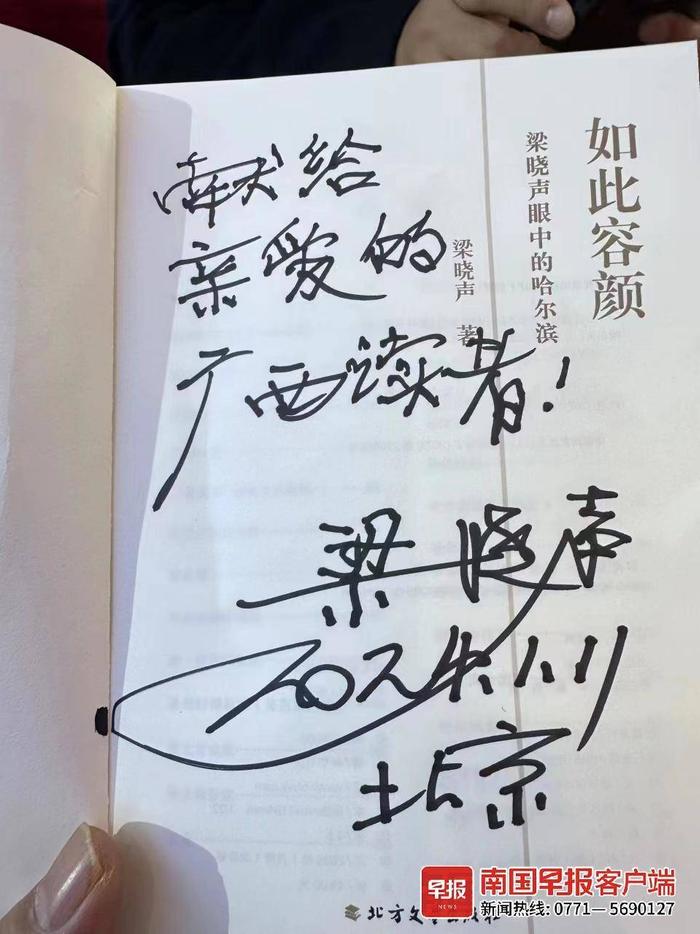 如此容颜
梁晓声眼中的哈尔滨
梁晓声 著
献给
亲爱的
广西读者!
梁晓声
北京
北方文艺出版社
早报
NEWS
南国早报客户端
新闻热线: 0771—5690127